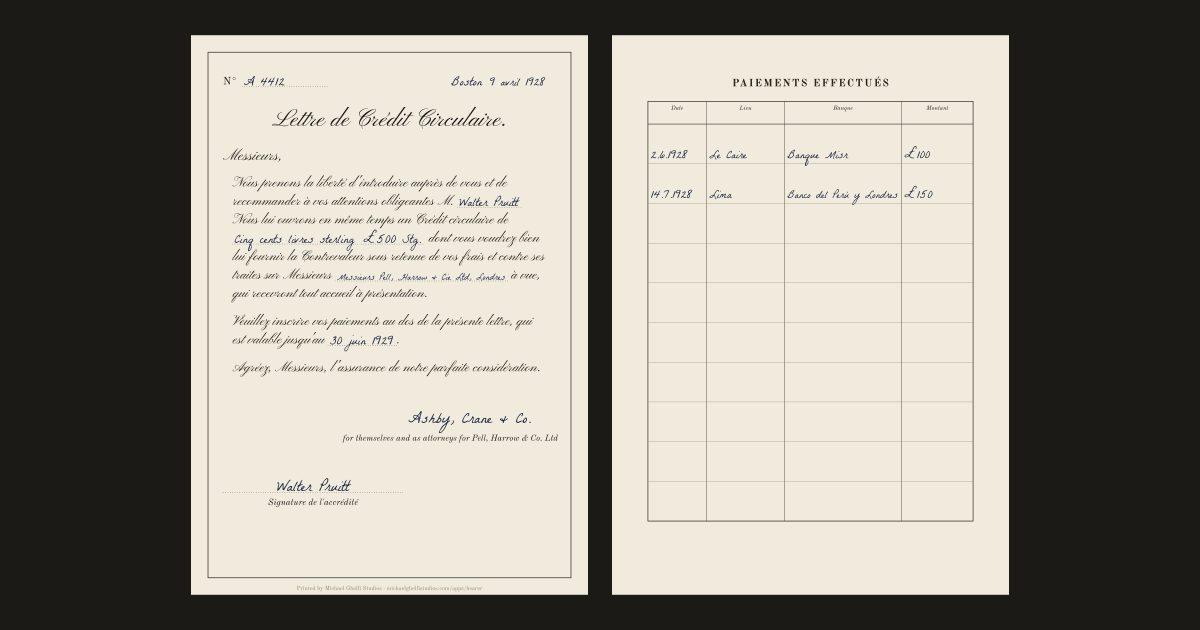 N° A 4412
Boston 9 avril 1928
Lettre de Crédit Circulaire.
Messieurs,
Nous prenons la liberté d'introduire auprès de vous et de
recommander à vos attentions obligeantes M. Walter Pruitt
Nous lui ouvrons en même temps un Crédit circulaire de
Cinq cents livres sterling £500 Stg. dont vous voudrez bien
lui fournir la Contrevaleur sous retenue de vos frais et contre ses
traites sur Messieurs Messieurs Pell, Harrow & Cie Ltd, Londres à vue,
qui recevront tout accueil à présentation.
Veuillez inscrire vos paiements au dos de la présente lettre, qui
est valable jusqu'au 30 juin 1929.
Agréez, Messieurs, l'assurance de notre parfaite considération.
Ashby, Crane & Co.
for themselves and as attorneys for Pell, Harrow & Co. Ltd
Walter Pruitt
Signature de l'accrédité
Printed by Michael Ghelfi Studios · michaelghelfistudios.com/apps/bearer
PAIEMENTS EFFECTUÉS
Date Lieu Banque Montant
2.6.1928 Le Caire Banque Misr £100
14.7.1928 Lima Banco del Perú y Londres £150